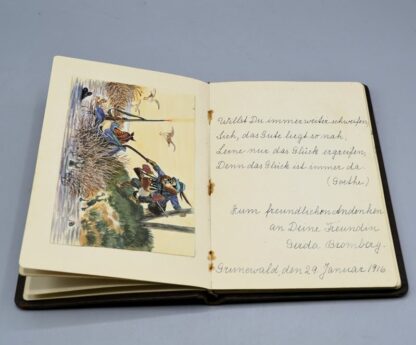 Willst Du immer weiter schweifen,
Sieh, das Gute liegt so nah,
Lerne nur das Glück ergreifen,
Denn das Glück ist immer da.
(Goethe.)
Zum freundlichen Andenken
an Deine Freundin
Gerda Bromberg.
Grunewald, den 29. Januar 1916.